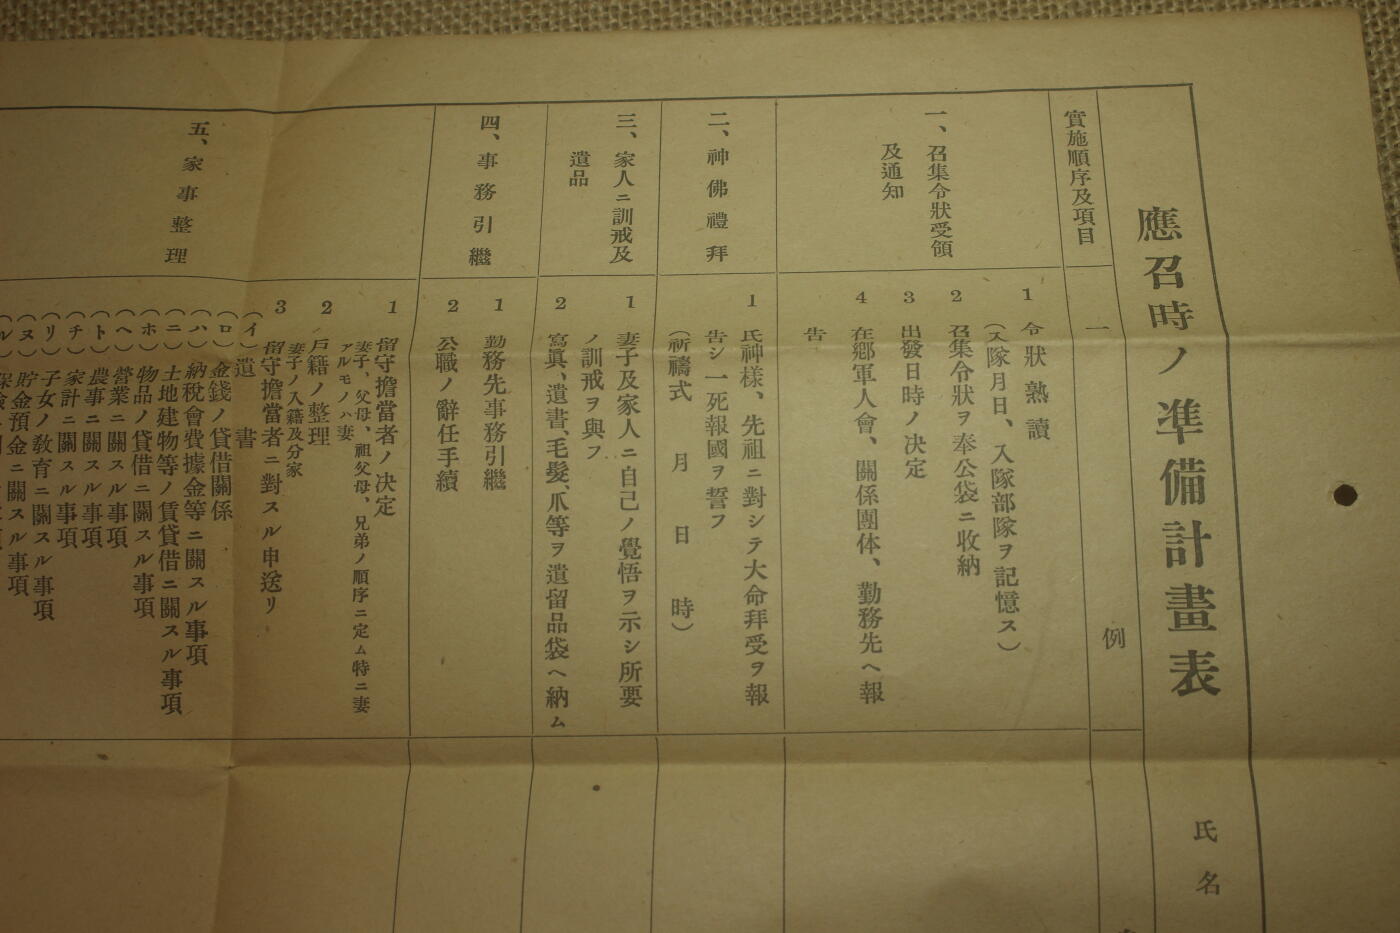 應召時ノ準備計畫表
氏名
實施順序及項目
一例
一、召集令狀受領
及通知
1 令狀熟讀
(入隊月日、入隊部隊ヲ記憶ス)
2 召集令狀ヲ奉公袋ニ收納
3 出發日時ノ決定
4 在鄕軍人會、關係團体、勤務先ヘ報
告
二、神佛禮拜
1 氏神様、先祖ニ對シテ大命拜受ヲ報
告シ一死報國ヲ誓フ
(祈禱式 月 日 時)
三、家人ニ訓戒及
遺品
1 妻子及家人ニ自己ノ覺悟ヲ示シ所要
ノ訓戒ヲ與フ
2 寫眞、遺書、毛髮、爪等ヲ遺留品袋ヘ納ム
四、事務引繼
1 勤務先事務引繼
2 公職ノ辭任手續
五、家事整理
1 留守擔當者ノ決定
妻子、父母、祖父母、兄弟ノ順序ニ定ム特ニ妻
アルモノハ妻
2 戶籍ノ整理
妻子ノ入籍及分家
3 留守擔當者ニ對スル申送リ
(イ)遺書
(ロ)金錢ノ貸借關係
(ハ)納稅會費據金等ニ關スル事項
(ニ)土地建物等ノ賃貸借ニ關スル事項
(ホ)物品ノ貸借ニ關スル事項
(ヘ)營業ニ關スル事項
(ト)農事ニ關スル事項
(チ)家計ニ關スル事項
(リ)子女ノ敎育ニ關スル事項
(ヌ)貯金預金ニ關スル事項
(ル)保險